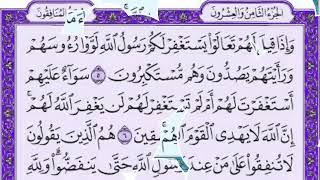 الجزء الثامن والعشرون المنافقون
وَإِذَا قِيلَ لَهُمْ تَعَالَوْا۟ يَسْتَغْفِرْ لَكُمْ رَسُولُ ٱللَّهِ لَوَّوْا۟ رُءُوسَهُمْ
وَرَأَيْتَهُمْ يَصُدُّونَ وَهُم مُّسْتَكْبِرُونَ ٥ سَوَآءٌ عَلَيْهِمْ
أَسْتَغْفَرْتَ لَهُمْ أَمْ لَمْ تَسْتَغْفِرْ لَهُمْ لَن يَغْفِرَ ٱللَّهُ لَهُمْ
إِنَّ ٱللَّهَ لَا يَهْدِى ٱلْقَوْمَ ٦ هُمُ ٱلَّذِينَ يَقُولُونَ
لَا تُنفِقُوا۟ عَلَىٰ مَنْ عِندَ رَسُولِ ٱللَّهِ حَتَّىٰ يَنفَضُّوا۟ وَلِلَّهِ